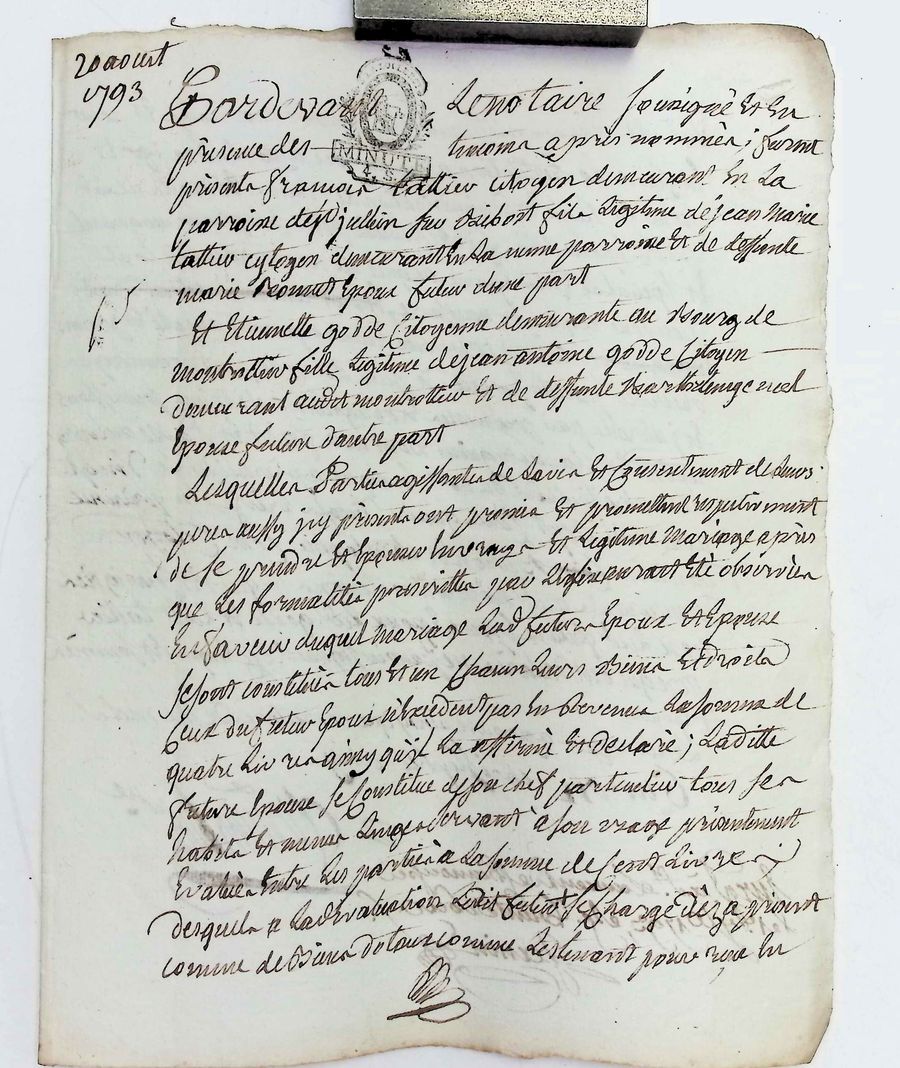 20 aoust
1793
Pardevant Le notaire soussigné Et En
présence des témoins après nommés ; furent
MINUTE
4. S.
présents françois Lattieu Citoyen demeurant En La
parroisse de St jullien sur Bibost fils Légitime de jean Marie
Lattieu cytoyen demeurant En La meme parroisse Et de deffunte
marie Epoux futur d'une part
Et Etiennette godde Citoyenne demeurante au Bourg de
montrottier fille Légitime de jean antoine godde Citoyen
demeurant audt montrottier Et de deffunte
Epouse future dautre part
Lesquelles Parties agissantes de Lavis Et Consentement de Leurs
peres aussy jcy présents ont promis Et promettent respectivement
de se prendre Et Epouser En vraye Et Légitime Mariage après
que Les formalités prescrittes par auront été observées
En faveur duquel mariage Lesd. futurs Epoux Et Epouse
se sont constitués tous Et un Chacun Leurs Biens Et droits
Ceux du futur Epoux n'Excedent pas En Revenus La somme de
quatre Livres ainsy qu'jl La affirmé Et declaré ; Laditte
future Epouse se Constitue de son chef particulier tous ses
habits Et menus Linges servant à son usage présentement
Evalués Entre Les parties a La somme de Cent Livres
desquels a Lad. Evaluation Ledit futur se Charge dès a présent
comme de Biens dotaux comme Les tenant pour reçu En